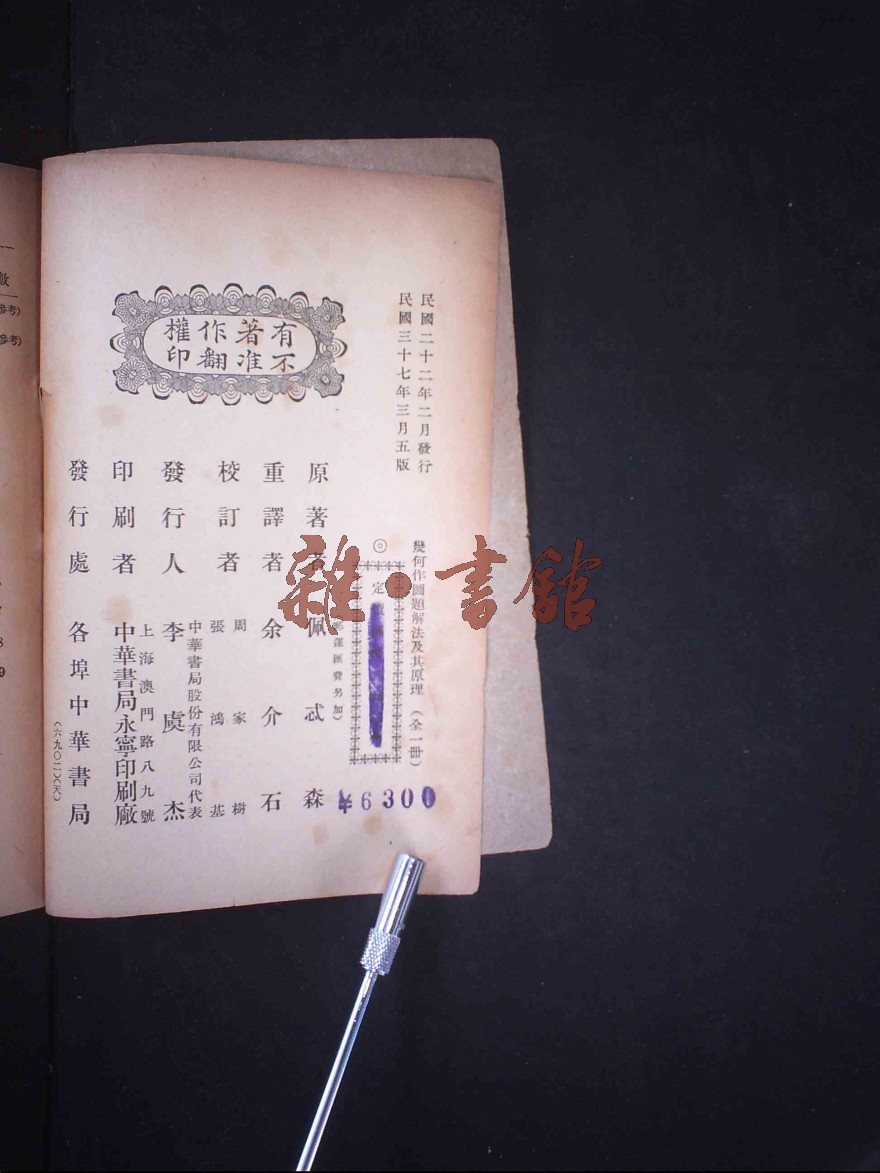 民國二十二年二月發行
民國三十七年三月五版
有著作權
不准翻印
幾何作圖題解法及其原理（全一冊）
◎定
郵運匯費另加）
6300
原著者 佩忒森
重譯者 余介石
校訂者 周家樹
張鴻基
中華書局股份有限公司代表
發行人 李虞杰
上海澳門路八九號
印刷者 中華書局永寧印刷廠
發行處 各埠中華書局
（六九〇二）（天）
雜·書館
數
參考）
參考）